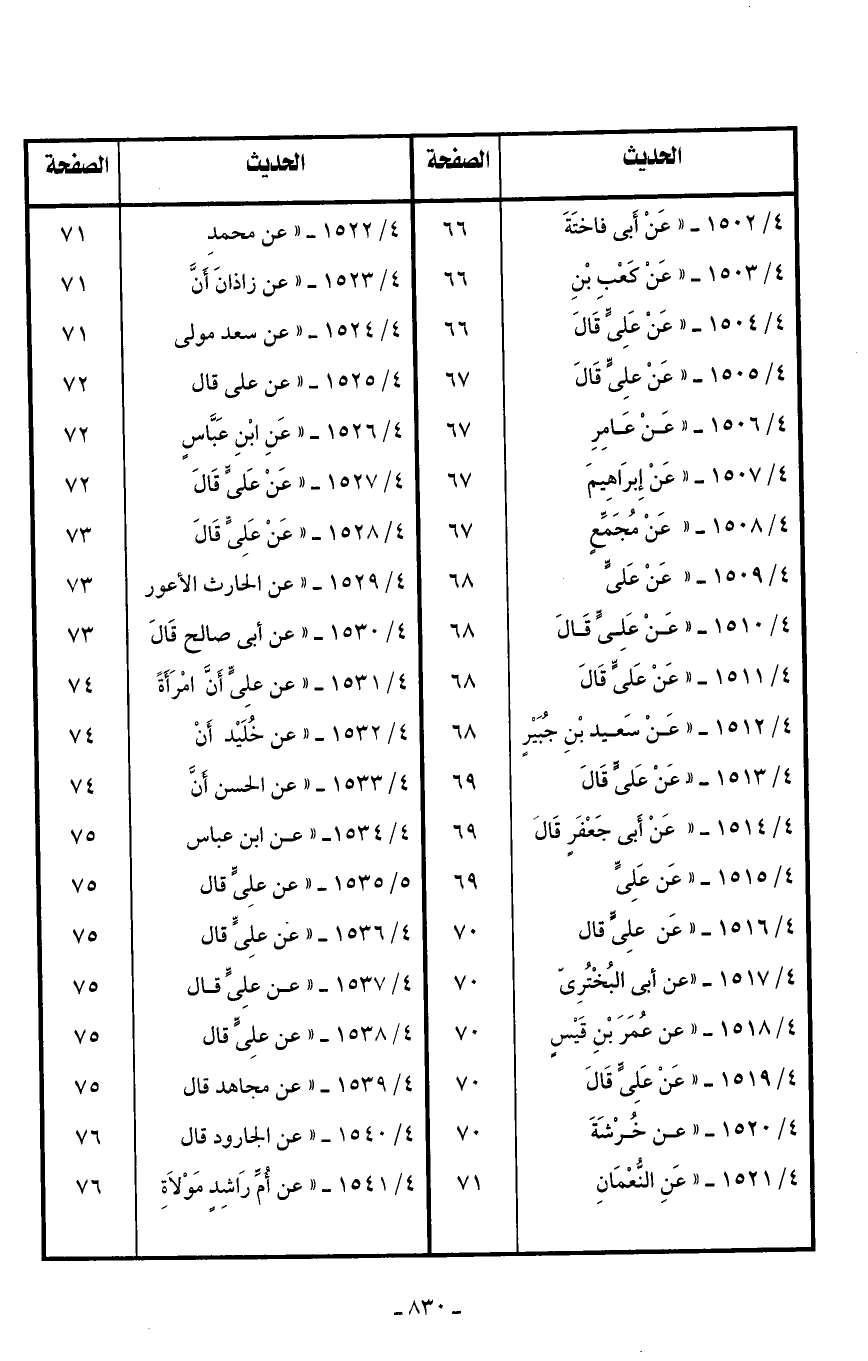 الحديث الصفحة الحديث الصفحة
٤/ ١٥٠٢ ـ « عَنْ أَبى فاختَةَ ٦٦ ٤/ ١٥٢٢ ـ « عن محمدِ ٧١
٤/ ١٥٠٣ ـ « عَنْ كَعْبِ بْنِ ٦٦ ٤/ ١٥٢٣ ـ « عن زاذانَ أَنَّ ٧١
٤/ ١٥٠٤ ـ « عَنْ عَلِىٍّ قَالَ ٦٦ ٤/ ١٥٢٤ ـ « عن سعد مولى ٧١
٤/ ١٥٠٥ ـ « عَنْ علِىٍّ قَالَ ٦٧ ٤/ ١٥٢٥ ـ « عن على قال ٧٢
٤/ ١٥٠٦ ـ « عَـنْ عَـامِرِ ٦٧ ٤/ ١٥٢٦ ـ « عَنِ ابْنِ عَبَّاسٍ ٧٢
٤/ ١٥٠٧ ـ « عَنْ إِبرَاهِيمَ ٦٧ ٤/ ١٥٢٧ ـ « عَنْ عَلىٍّ قَالَ ٧٢
٤/ ١٥٠٨ ـ « عَنْ مُجَمِّعٍ ٦٧ ٤/ ١٥٢٨ ـ « عَنْ عَلِىٍّ قَالَ ٧٣
٤/ ١٥٠٩ ـ « عَنْ عَلىٍّ ٦٨ ٤/ ١٥٢٩ ـ « عن الحارث الأعور ٧٣
٤/ ١٥١٠ ـ « عَـنْ عَلِـىٍّ قَـالَ ٦٨ ٤/ ١٥٣٠ ـ « عن أبى صالح قَالَ ٧٣
٤/ ١٥١١ ـ « عَنْ عَلىٍّ قَالَ ٦٨ ٤/ ١٥٣١ ـ « عن علِىٍّ أَنَّ امْرَأَةً ٧٤
٤/ ١٥١٢ ـ « عَـنْ سَعـيد بْنِ جُبَيْرٍ ٦٨ ٤/ ١٥٣٢ ـ « عن خُلَيْد أَنْ ٧٤
٤/ ١٥١٣ ـ « عَنْ عَلىٍّ قَالَ ٦٩ ٤/ ١٥٣٣ ـ « عن الحسن أَنَّ ٧٤
٤/ ١٥١٤ ـ « عَنْ أَبى جَعْفَرٍ قَالَ ٦٩ ٤/ ١٥٣٤ـ « عـن ابن عباس ٧٥
٤/ ١٥١٥ ـ « عَن عَلىٍّ ٦٩ ٥/ ١٥٣٥ ـ « عن علِىٍّ قال ٧٥
٤/ ١٥١٦ ـ « عَن علِىٍّ قال ٧٠ ٤/ ١٥٣٦ ـ « عن علِىٍّ قال ٧٥
٤/ ١٥١٧ ـ «عن أبى البُخْتُرِىّ ٧٠ ٤/ ١٥٣٧ ـ « عـن علِىٍّ قـال ٧٥
٤/ ١٥١٨ ـ « عن عُمَرَ بْنِ قَيْسٍ ٧٠ ٤/ ١٥٣٨ ـ « عن علِىٍّ قال ٧٥
٤/ ١٥١٩ ـ « عَنْ عَلِىٍّ قَالَ ٧٠ ٤/ ١٥٣٩ ـ « عن مجاهد قال ٧٥
٤/ ١٥٢٠ ـ « عـن خُـرْشَةَ ٧٠ ٤/ ١٥٤٠ ـ « عن الجارود قال ٧٦
٤/ ١٥٢١ ـ « عَنِ النُّعْمَانِ ٧١ ٤/ ١٥٤١ ـ « عن أُمِّ رَاشِدٍ مَوْلاَةِ ٧٦
ـ ٨٣٠ ـ